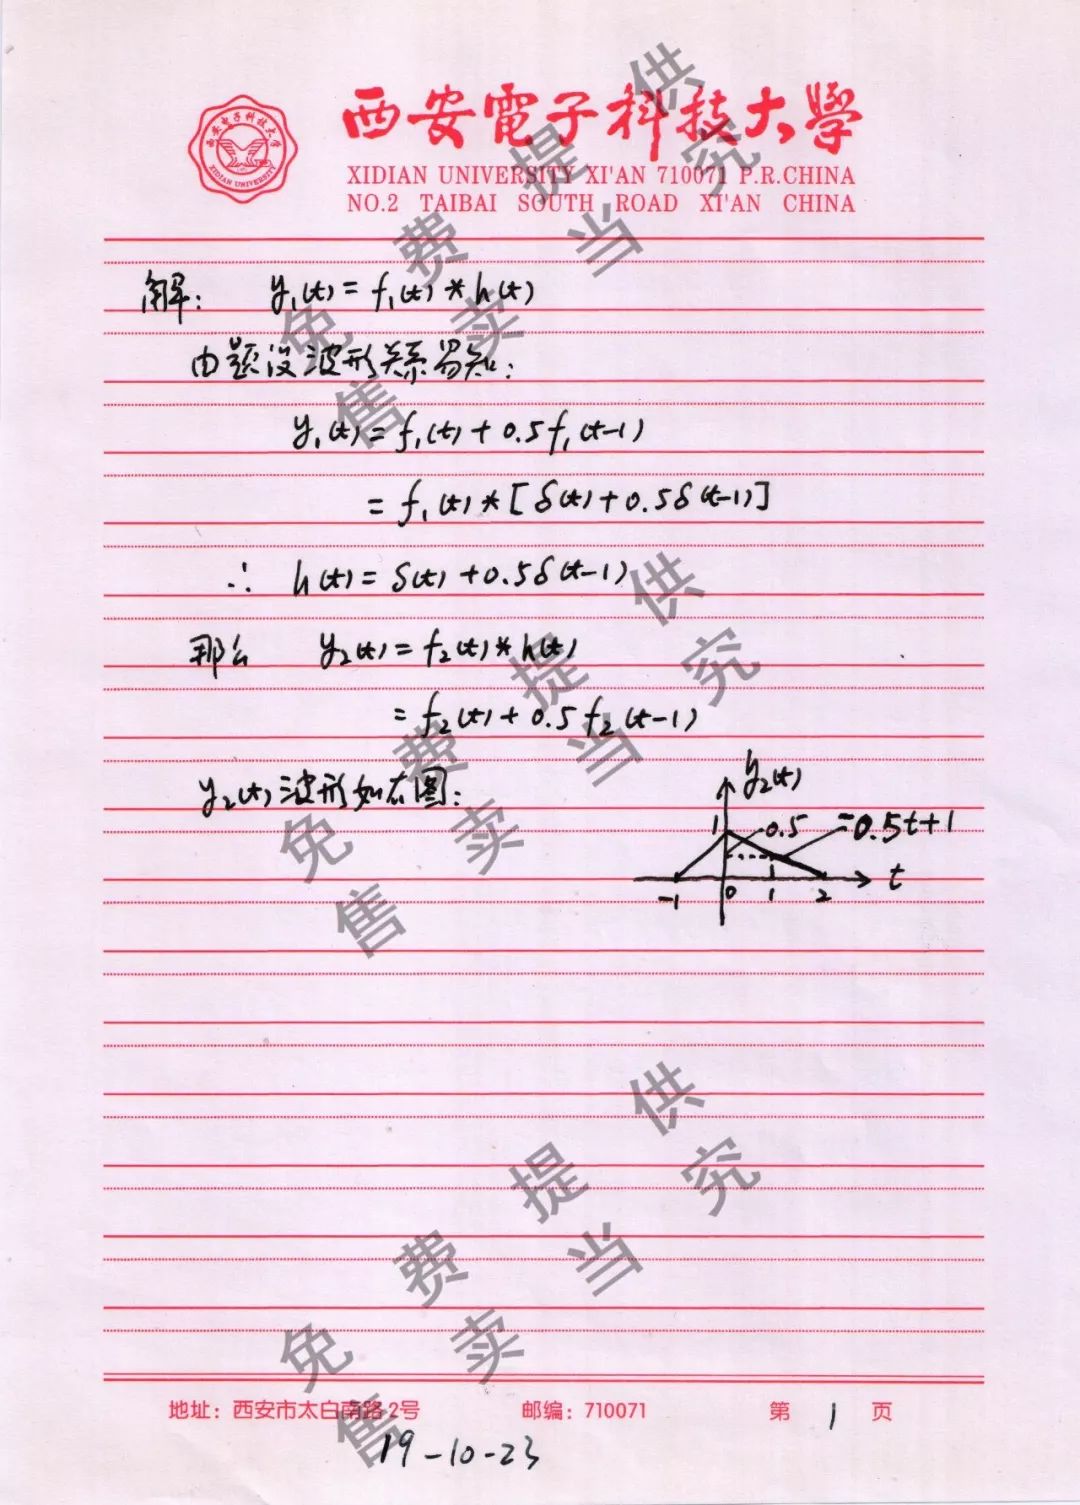 西安電子科技大學
XIDIAN UNIVERSITY XI'AN 710071 P.R.CHINA
NO.2 TAIBAI SOUTH ROAD XI'AN CHINA
西安电子科技大学
XIDIAN UNIVERSITY
解: y₁(t) = f₁(t) * h(t)
由题设波形关系易知:
y₁(t) = f₁(t) + 0.5 f₁(t-1)
= f₁(t) * [ δ(t) + 0.5δ(t-1) ]
∴ h(t) = δ(t) + 0.5δ(t-1)
那么 y₂(t) = f₂(t) * h(t)
= f₂(t) + 0.5 f₂(t-1)
y₂(t) 波形如右图:
y₂(t)
1 0.5 -0.5t+1
t
-1 0 1 2
免费提供
售卖当究
免费提供
售卖当究
免费提供
售卖当究
地址: 西安市太白南路2号 邮编: 710071 第 1 页
19-10-23